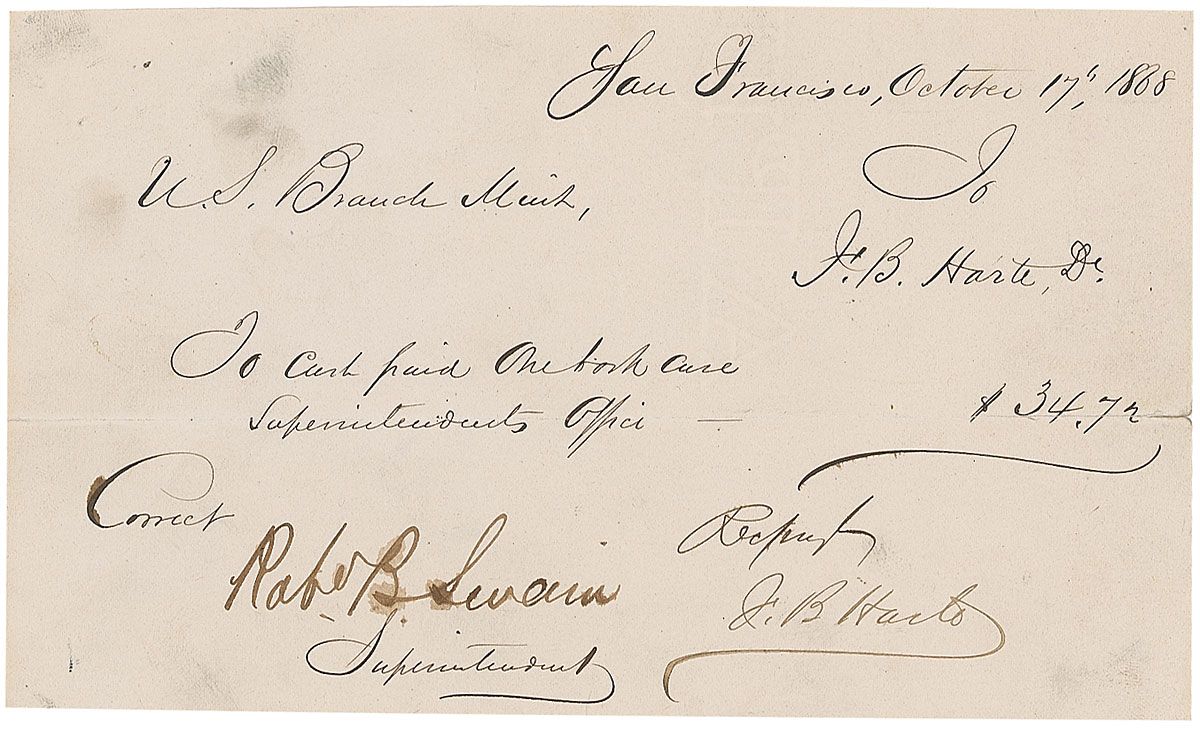 San Francisco, October 17th, 1868
U. S. Branch Mint,
To
F. B. Harte, Dr.
To Cash paid One book case
Superintendents Office — $ 34.72
Correct
Robt. B. Swain
Superintendent
F. B Harte